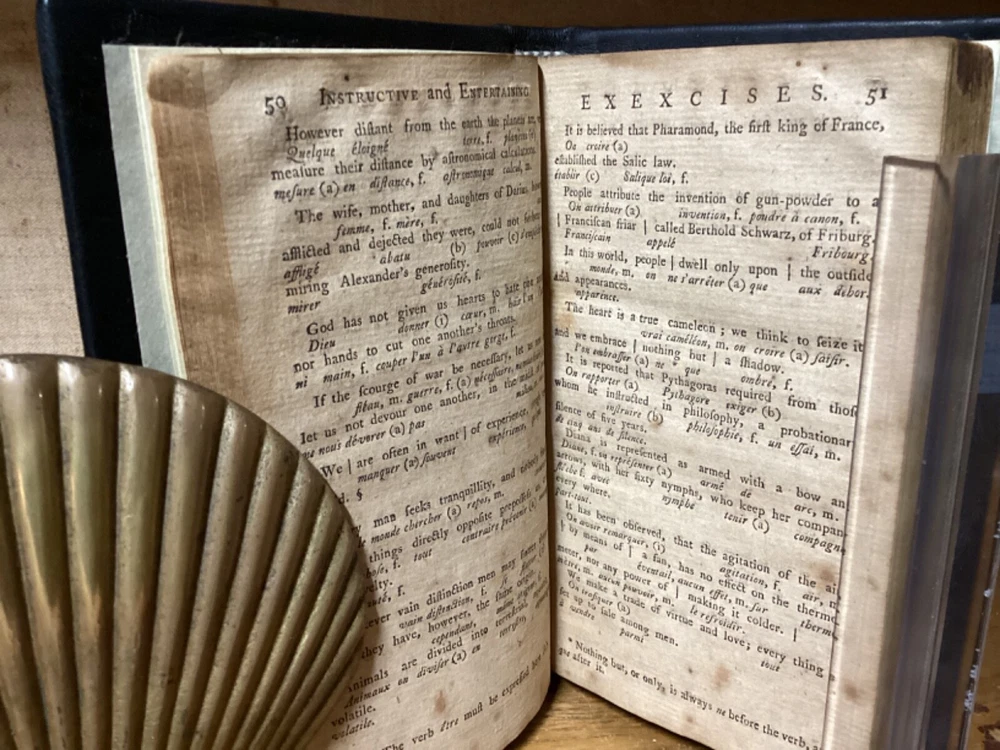 50 INSTRUCTIVE and ENTERTAINING
However diſtant from the earth the planets are,
Quelque éloigné terre, f. planete
meaſure their diſtance by aſtronomical calculations
meſure (a) en diſtance, f. aſtronomique calcul, m.
The wife, mother, and daughters of Darius,
femme, f. mère, f.
afflicted and dejected they were, could not
affligé abatu (b) pouvoir (c)
miring Alexander's generoſity.
mirer généroſité, f.
God has not given us hearts to hate
Dieu donner (i) cœur, m. haïr
nor hands to cut one another's throats.
ni main, f. couper l'un à l'autre gorge, f.
If the ſcourge of war be neceſſary, let us
fléau, m. guerre, f. (a) néceſſaire,
let us not devour one another, in the
ne nous dévorer (a) pas
We | are often in want | of experience,
manquer (a) ſouvent expérience,
d. §
man ſeeks tranquillity, and
monde chercher (a) repos, m.
things directly oppoſite
f. tout contraire
elty.
f.
ever vain diſtinction men may
vain diſtinction, f.
they have, however, the ſame origin.
cependant,
Animals are divided into
Animaux on diviſer (a) en
volatile.
volatile.
The verb être muſt be expreſſed
EXEXCISES. 51
It is believed that Pharamond, the firſt king of France,
On croire (a)
eſtabliſhed the Salic law.
établir (c) Salique loi, f.
People attribute the invention of gun-powder to a
On attribuer (a) invention, f. poudre à canon, f.
| Franciſcan friar | called Berthold Schwarz, of Friburg.
Franciſcain appelé Fribourg.
In this world, people | dwell only upon | the outſide
monde, m. on ne s'arrêter (a) que aux dehor.
and appearances.
apparence.
The heart is a true cameleon ; we think to ſeize it
vrai caméléon, m. on croire (a) ſaiſir.
and we embrace | nothing but | a ſhadow.
l'on embraſſer (a) ne * que ombre, f.
It is reported that Pythagoras required from thoſ
On rapporter (a) Pythagore exiger (b)
whom he inſtructed in philoſophy, a probationar
inſtruire (b) philoſophie, f. un eſſai, m.
ſilence of five years.
de cinq ans de ſilence.
Diana is repreſented as armed with a bow an
Diane, f. on repréſenter (a) armé de arc, m.
arrows, with her ſixty nymphs, who keep her compan
flèche f. avec nymphe tenir (a) compagn
every where.
par-tout.
It has been obſerved, that the agitation of the air
On avoir remarquer, (i) agitation, f. air,
| by means of | a fan, has no effect on the thermo
par éventail, aucun effet, m. ſur therm
meter, nor any power of | making it colder. |
mètre, m. aucun pouvoir, m. le refroidir.
We make a trade of virtue and love; every thing
On trafiquer (a) tout
ſet up to ſale among men.
à vendre parmi
* Nothing but, or only, is always ne before the verb,
que after it.